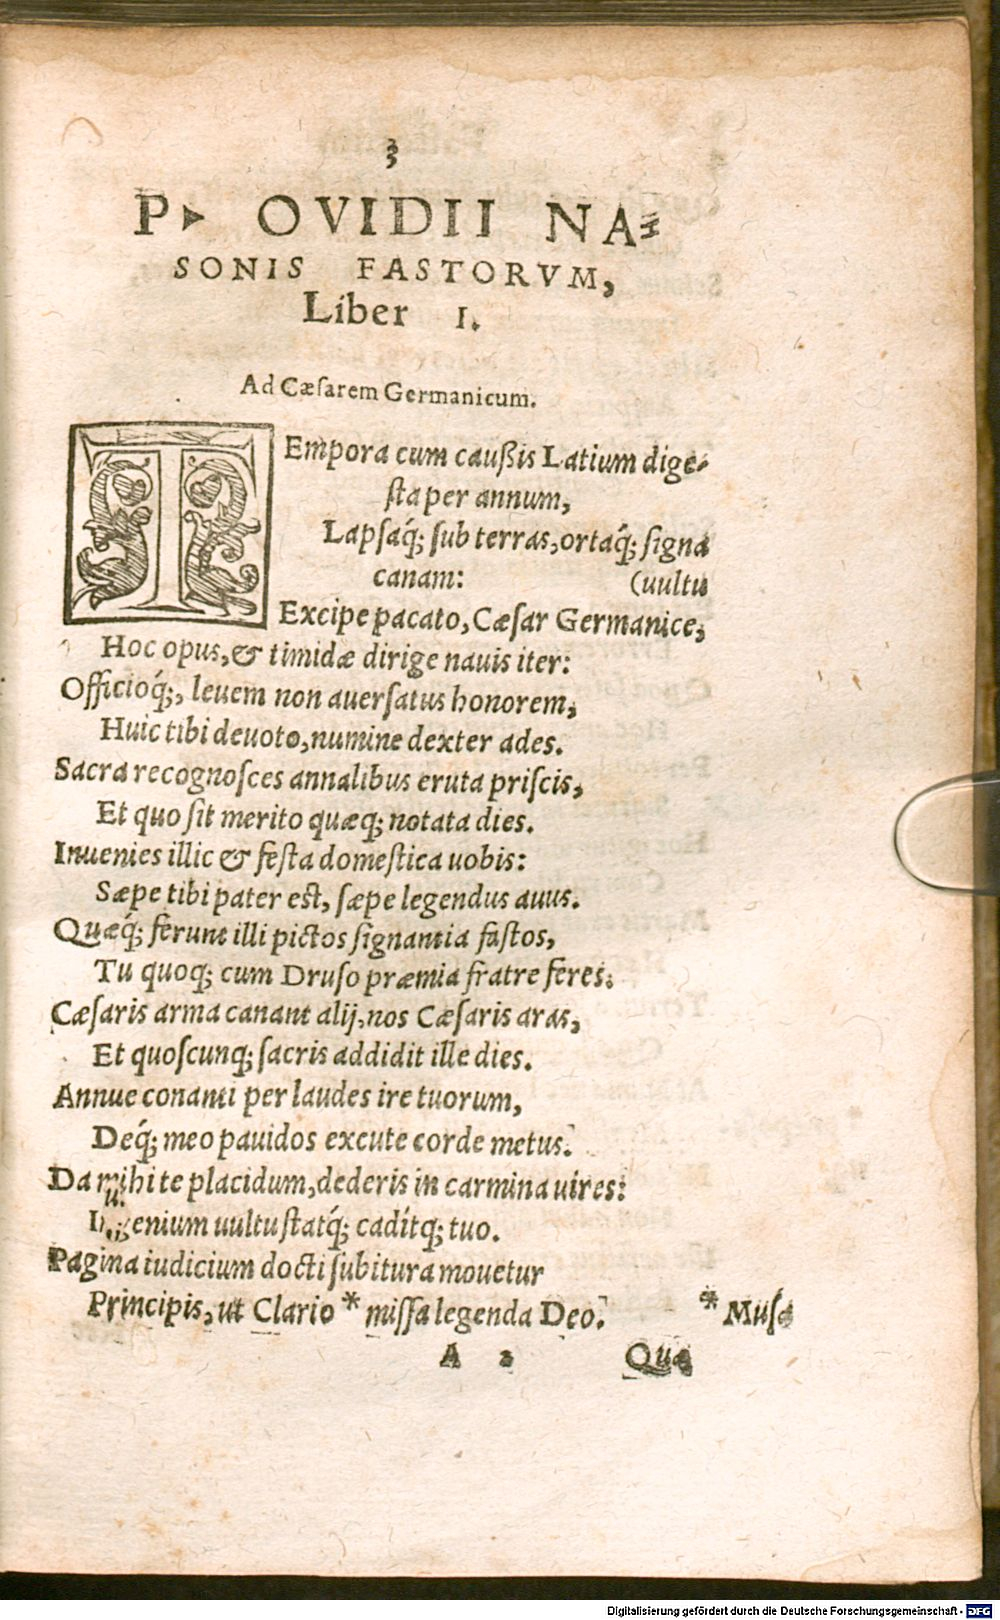 3
P. OVIDII NA=
SONIS FASTORVM,
Liber I.
Ad Cæsarem Germanicum.
TEmpora cum caußis Latium dige-
sta per annum,
Lapsaq́; sub terras, ortaq́; signa
canam: (uultu
Excipe pacato, Cæsar Germanice,
Hoc opus, & timidæ dirige nauis iter:
Officioq́;, leuem non auersatus honorem,
Huic tibi deuoto, numine dexter ades.
Sacra recognosces annalibus eruta priscis,
Et quo sit merito quæq; notata dies.
Inuenies illic & festa domestica uobis:
Sæpe tibi pater est, sæpe legendus auus.
Quæq́; ferunt illi pictos signantia fastos,
Tu quoq; cum Druso præmia fratre feres.
Cæsaris arma canant alij, nos Cæsaris aras,
Et quoscunq; sacris addidit ille dies.
Annue conanti per laudes ire tuorum,
Deq́; meo pauidos excute corde metus.
Da mihi te placidum, dederis in carmina uires:
Ingenium uultu statq́; cadítq; tuo.
Pagina iudicium docti subitura mouetur
Principis, ut Clario * missa legenda Deo. * Musa
A 2 Quæ
Digitalisierung gefördert durch die Deutsche Forschungsgemeinschaft - DFG